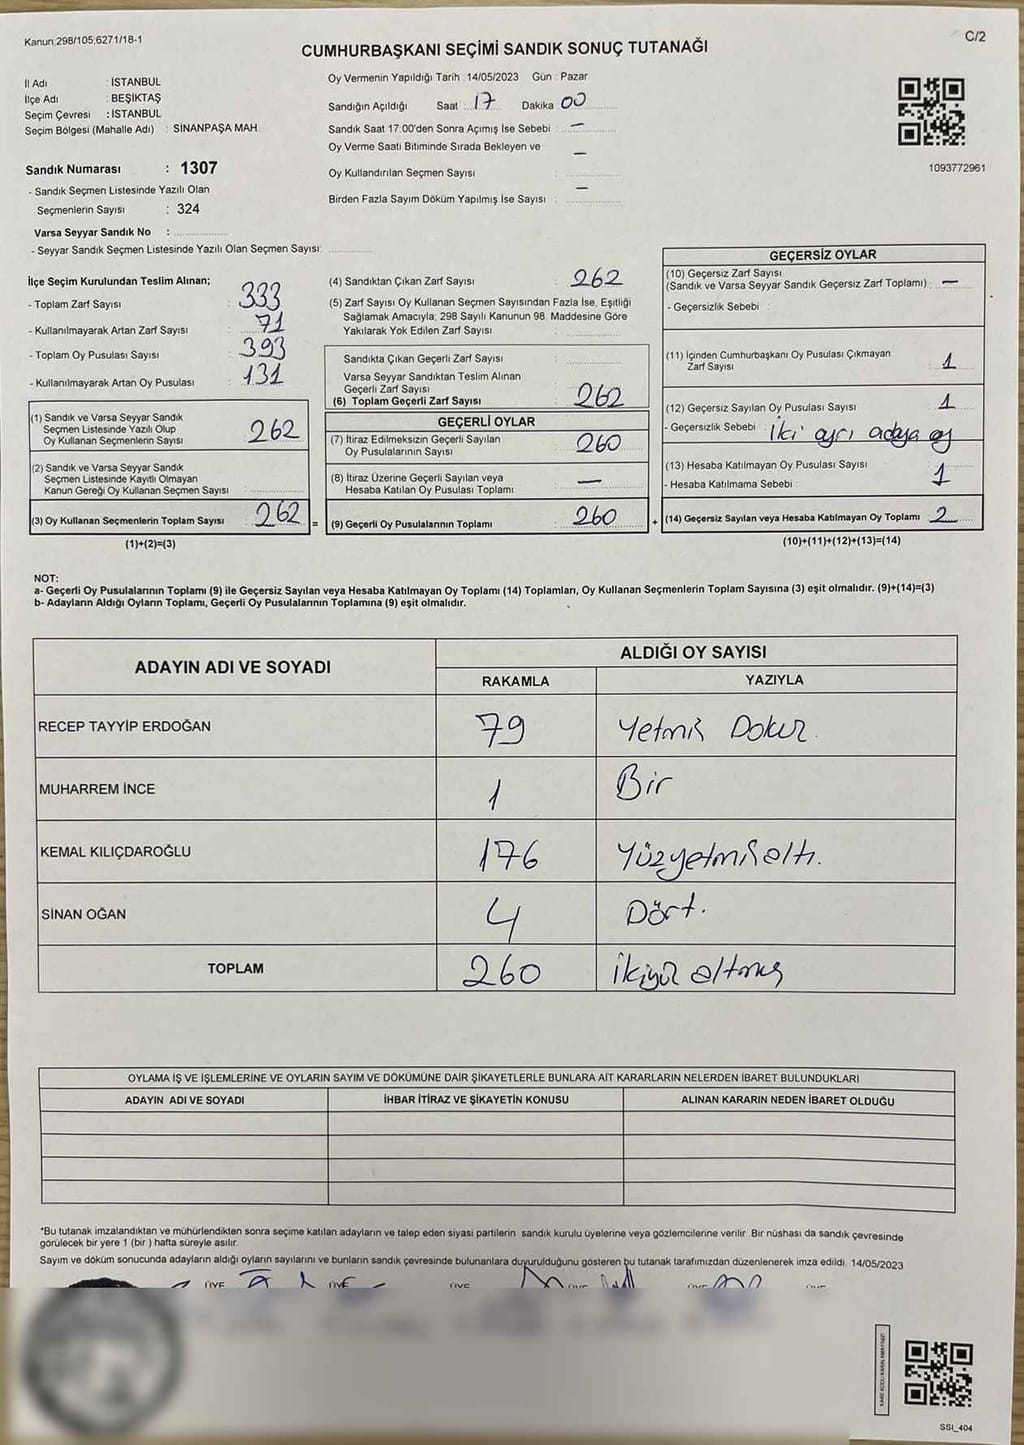 Kanun:298/105,6271/18-1
C/2
CUMHURBAŞKANI SEÇİMİ SANDIK SONUÇ TUTANAĞI
İl Adı : İSTANBUL
İlçe Adı : BEŞİKTAŞ
Seçim Çevresi : İSTANBUL
Seçim Bölgesi (Mahalle Adı) : SİNANPAŞA MAH.
Sandık Numarası : 1307
- Sandık Seçmen Listesinde Yazılı Olan
Seçmenlerin Sayısı : 324
Varsa Seyyar Sandık No :
- Seyyar Sandık Seçmen Listesinde Yazılı Olan Seçmen Sayısı:
Oy Vermenin Yapıldığı Tarih : 14/05/2023 Gün : Pazar
Sandığın Açıldığı Saat : 17 Dakika : 00
Sandık Saat 17:00'den Sonra Açımış İse Sebebi : —
Oy Verme Saati Bitiminde Sırada Bekleyen ve
Oy Kullandırılan Seçmen Sayısı : —
Birden Fazla Sayım Döküm Yapılmış İse Sayısı : —
1093772961
İlçe Seçim Kurulundan Teslim Alınan;
- Toplam Zarf Sayısı : 333
- Kullanılmayarak Artan Zarf Sayısı : 71
- Toplam Oy Pusulası Sayısı : 393
- Kullanılmayarak Artan Oy Pusulası : 131
(1) Sandık ve Varsa Seyyar Sandık
Seçmen Listesinde Yazılı Olup
Oy Kullanan Seçmenlerin Sayısı : 262
(2) Sandık ve Varsa Seyyar Sandık
Seçmen Listesinde Kayıtlı Olmayan
Kanun Gereği Oy Kullanan Seçmen Sayısı :
(3) Oy Kullanan Seçmenlerin Toplam Sayısı : 262 =
(1)+(2)=(3)
(4) Sandıktan Çıkan Zarf Sayısı : 262
(5) Zarf Sayısı Oy Kullanan Seçmen Sayısından Fazla İse, Eşitliği
Sağlamak Amacıyla; 298 Sayılı Kanunun 98. Maddesine Göre
Yakılarak Yok Edilen Zarf Sayısı :
Sandıkta Çıkan Geçerli Zarf Sayısı :
Varsa Seyyar Sandıktan Teslim Alınan
Geçerli Zarf Sayısı :
(6) Toplam Geçerli Zarf Sayısı : 262
GEÇERLİ OYLAR
(7) İtiraz Edilmeksizin Geçerli Sayılan
Oy Pusulalarının Sayısı : 260
(8) İtiraz Üzerine Geçerli Sayılan veya
Hesaba Katılan Oy Pusulası Toplamı : —
(9) Geçerli Oy Pusulalarının Toplamı : 260 +
GEÇERSİZ OYLAR
(10) Geçersiz Zarf Sayısı
(Sandık ve Varsa Seyyar Sandık Geçersiz Zarf Toplamı) : —
- Geçersizlik Sebebi :
(11) İçinden Cumhurbaşkanı Oy Pusulası Çıkmayan
Zarf Sayısı : 1
(12) Geçersiz Sayılan Oy Pusulası Sayısı : 1
- Geçersizlik Sebebi : İki ayrı adaya oy
(13) Hesaba Katılmayan Oy Pusulası Sayısı : 1
- Hesaba Katılmama Sebebi :
(14) Geçersiz Sayılan veya Hesaba Katılmayan Oy Toplamı : 2
(10)+(11)+(12)+(13)=(14)
NOT:
a- Geçerli Oy Pusulalarının Toplamı (9) ile Geçersiz Sayılan veya Hesaba Katılmayan Oy Toplamı (14) Toplamları, Oy Kullanan Seçmenlerin Toplam Sayısına (3) eşit olmalıdır. (9)+(14)=(3)
b- Adayların Aldığı Oyların Toplamı, Geçerli Oy Pusulalarının Toplamına (9) eşit olmalıdır.
ADAYIN ADI VE SOYADI ALDIĞI OY SAYISI
RAKAMLA YAZIYLA
RECEP TAYYİP ERDOĞAN 79 Yetmiş Dokuz
MUHARREM İNCE 1 Bir
KEMAL KILIÇDAROĞLU 176 Yüzyetmişaltı.
SİNAN OĞAN 4 Dört.
TOPLAM 260 İkiyüz altmış
OYLAMA İŞ VE İŞLEMLERİNE VE OYLARIN SAYIM VE DÖKÜMÜNE DAİR ŞİKAYETLERLE BUNLARA AİT KARARLARIN NELERDEN İBARET BULUNDUKLARI
ADAYIN ADI VE SOYADI İHBAR İTİRAZ VE ŞİKAYETİN KONUSU ALINAN KARARIN NEDEN İBARET OLDUĞU
*Bu tutanak imzalandıktan ve mühürlendikten sonra seçime katılan adayların ve talep eden siyasi partilerin sandık kurulu üyelerine veya gözlemcilerine verilir. Bir nüshası da sandık çevresinde
görülecek bir yere 1 (bir ) hafta süreyle asılır.
Sayım ve döküm sonucunda adayların aldığı oyların sayılarını ve bunların sandık çevresinde bulunanlara duyurulduğunu gösteren bu tutanak tarafımızdan düzenlenerek imza edildi. 14/05/2023
ÜYE ÜYE ÜYE
KARE KODU KARALAMAYINIZ!
SSI_404